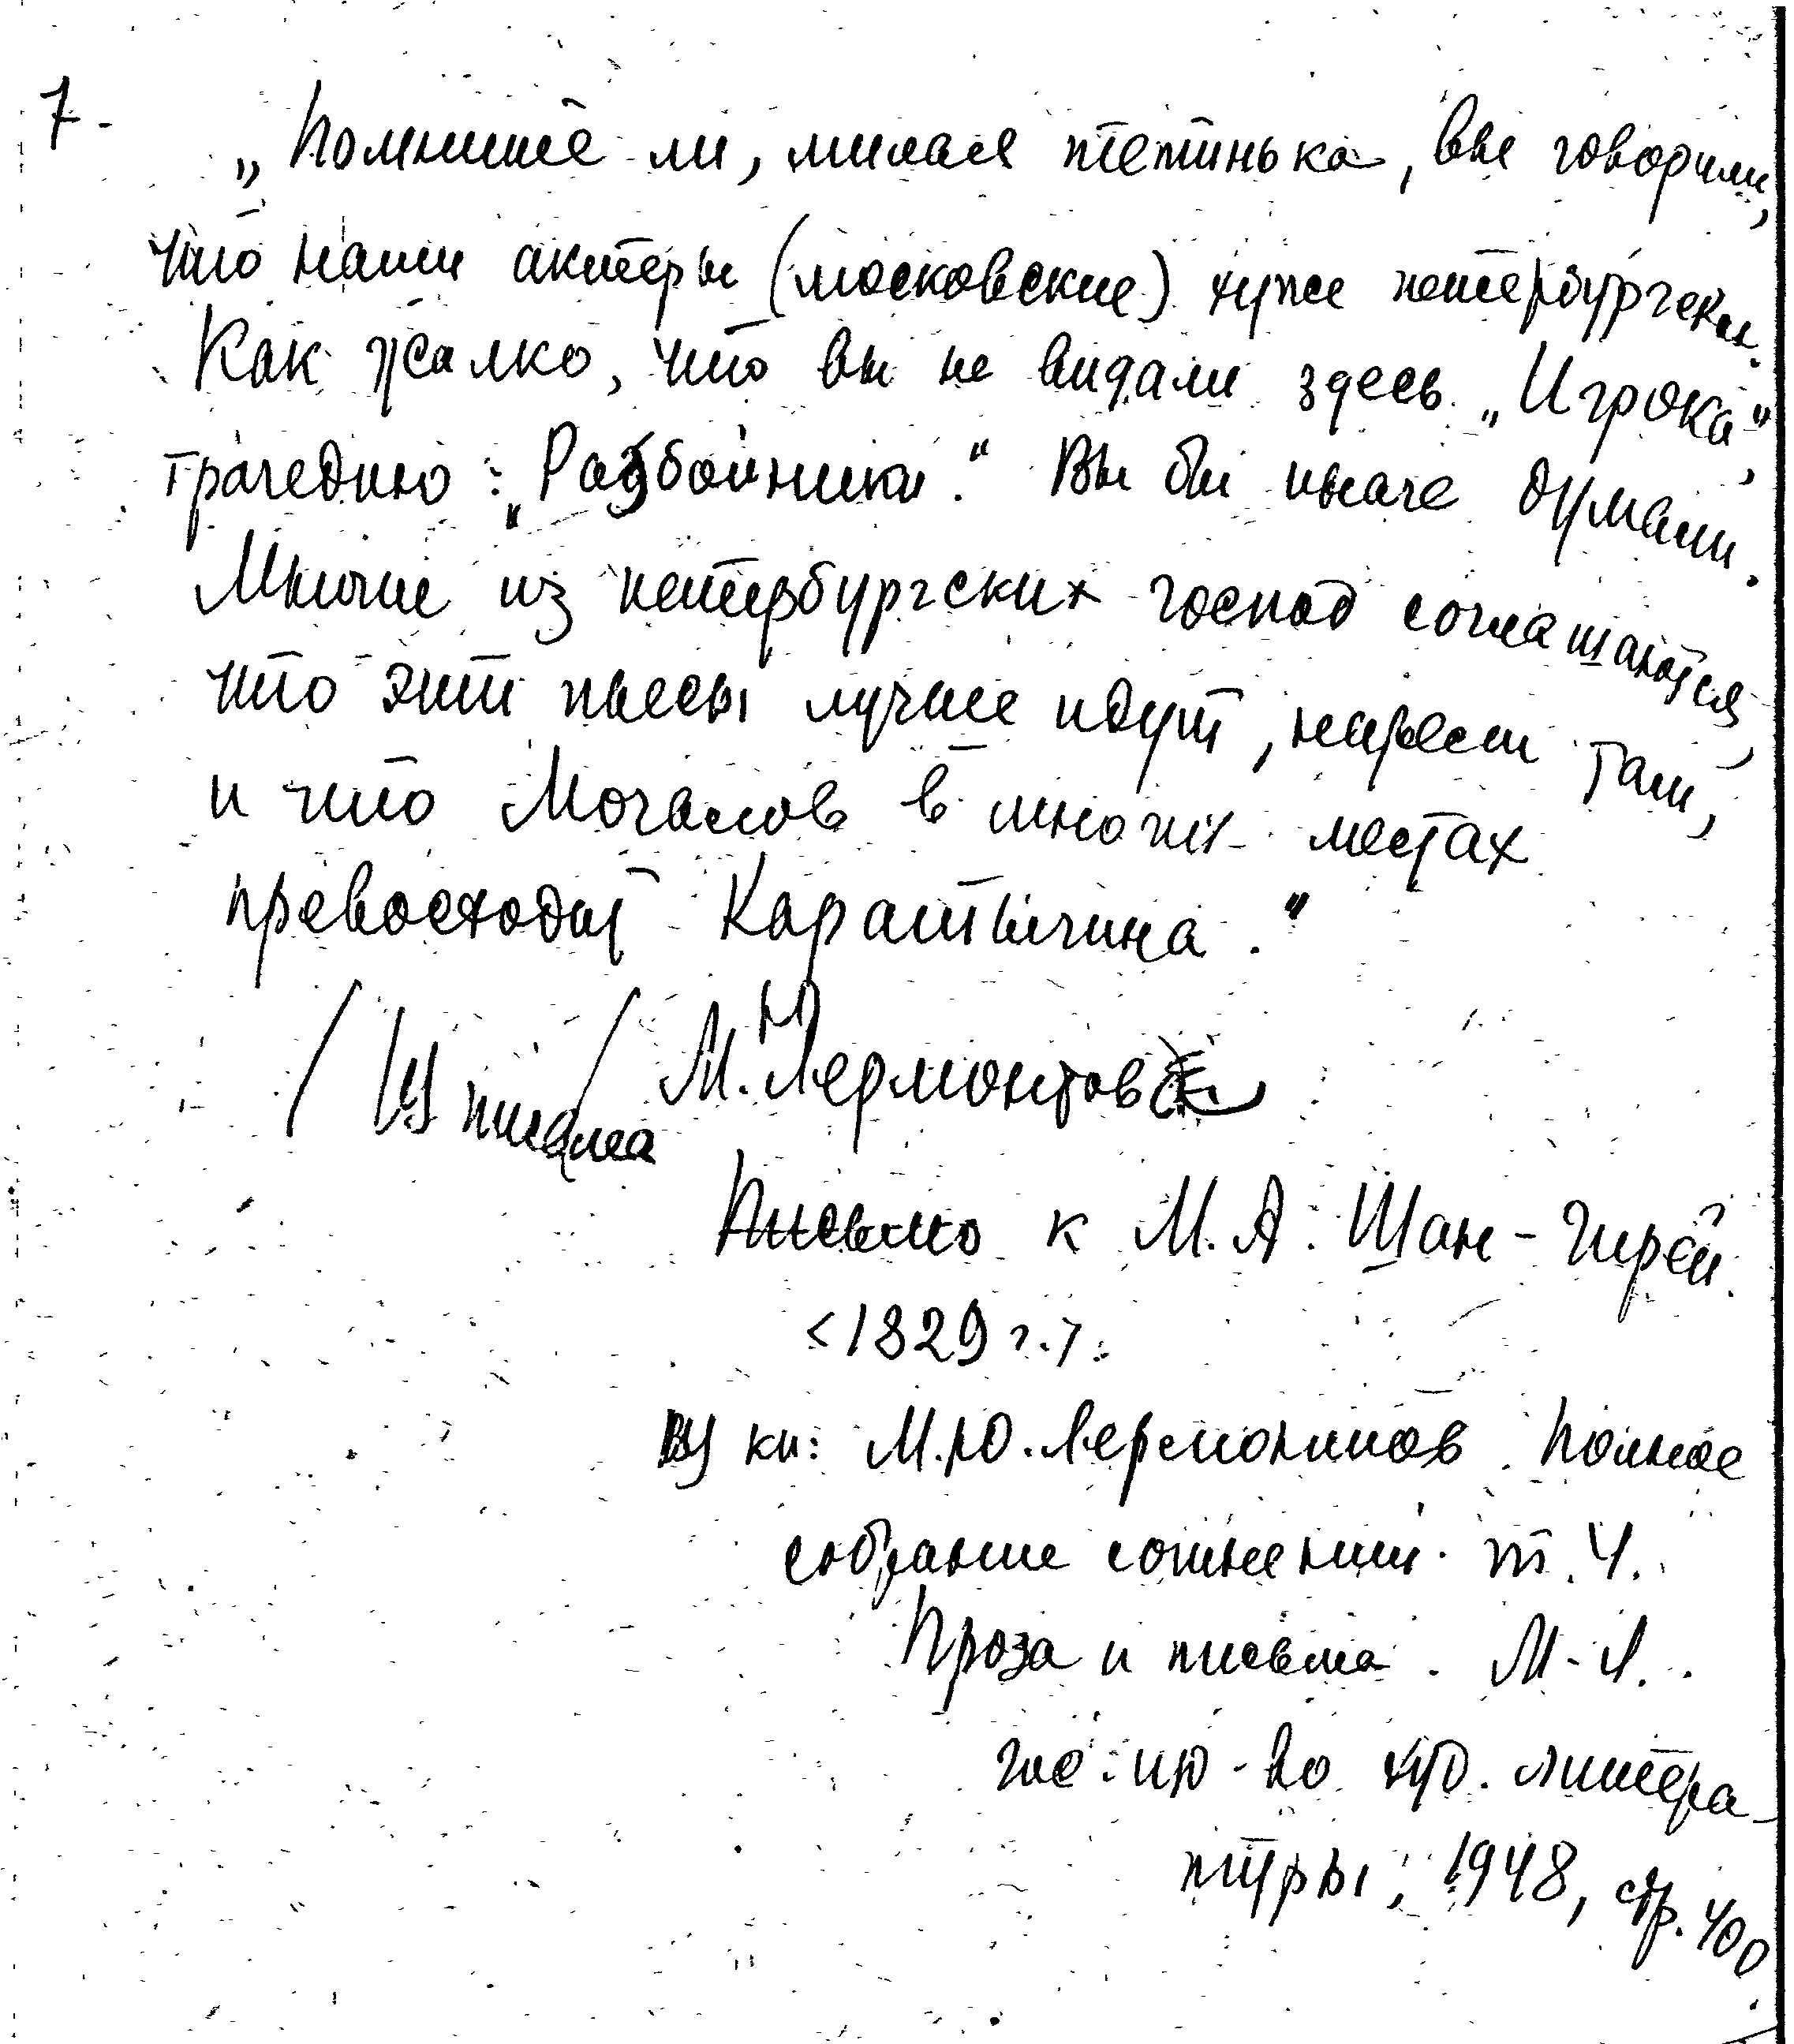 7.
„Помните ли, милая тетинька, вы говорили,
что наши актеры (московские) хуже петербургских.
Как жалко, что вы не видали здесь „Игрока",
трагедию: „Разбойники." Вы бы иначе думали.
Многие из петербургских господ соглашаются,
что эти пьесы лучше идут, нежели там,
и что Мочалов в многих местах
превосходит Каратыгина."
/Из письма/ М.Ю. Лермонтов
Письмо к М.А. Шан-Гирей.
<1829 г.>.
Из кн: М.Ю. Лермонтов. Полное
собрание сочинений. т. 4.
Проза и письма. М-Л.
гос. изд-во худ. литера-
туры, 1948, стр. 400